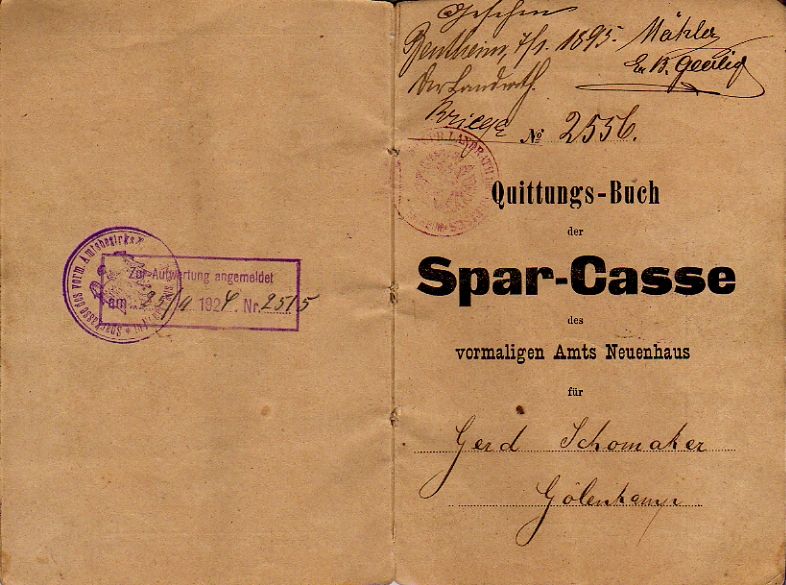 Sparkasse des vorm. Amtsbezirks
Zur Aufwertung angemeldet
am 1924. Nr. 2515
Gesehen
Bentheim, 7/1. 1895.
Der Landrath.
Kriege
№ 2556.
LANDRATH
Quittungs-Buch
der
Spar-Casse
des
vormaligen Amts Neuenhaus
für
Gerd Schomaker
Gölenkamp